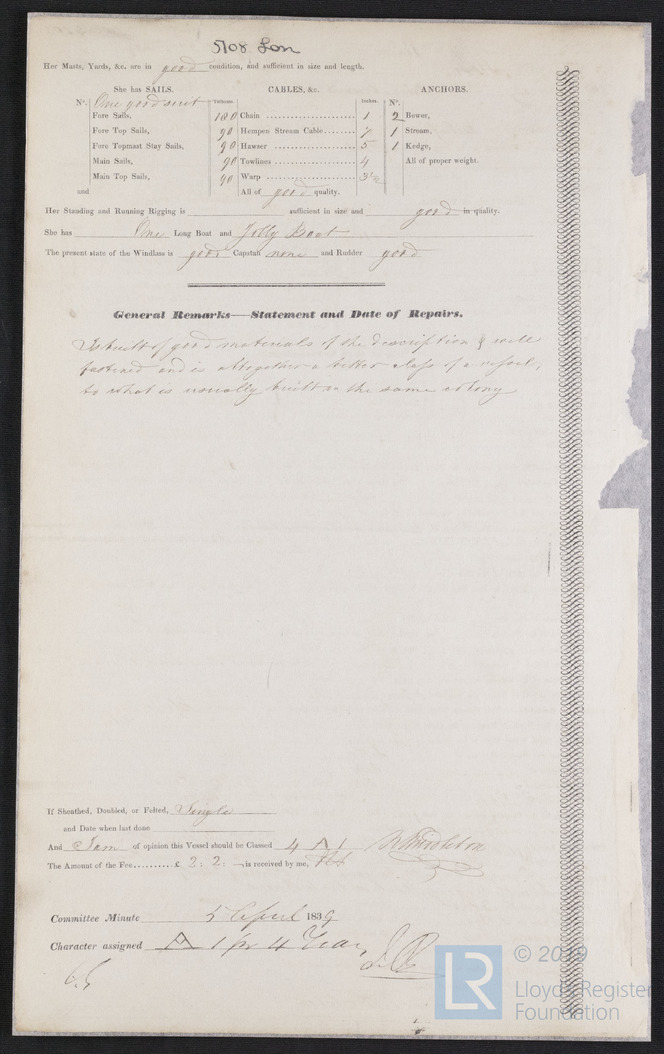 5708 Lon
Her Masts, Yards, &c. are in good condition, and sufficient in size and length.
She has SAILS. CABLES, &c. ANCHORS.
Nº. One good suit Fathoms. Inches. Nº.
Fore Sails, 180 Chain 1 2 Bower,
Fore Top Sails, 90 Hempen Stream Cable 7 1 Stream,
Fore Topmast Stay Sails, 90 Hawser 5 1 Kedge,
Main Sails, 90 Towlines 4 All of proper weight.
Main Top Sails, 90 Warp 3½
and All of good quality.
Her Standing and Running Rigging is sufficient in size and good in quality.
She has One Long Boat and Jolly Boat
The present state of the Windlass is good Capstan none and Rudder good
General Remarks—Statement and Date of Repairs.
Is built of good materials of the description & well
fastened and is altogether a better class of a vessel,
to what is usually built in the same colony
If Sheathed, Doubled, or Felted, Single
and Date when last done
And I am of opinion this Vessel should be Classed 4 A 1
The Amount of the Fee.......... £ 2 : 2 : — is received by me,
Committee Minute 5 April 1839
Character assigned A 1 for 4 Years
© 2019
LR
Lloyd's Register
Foundation